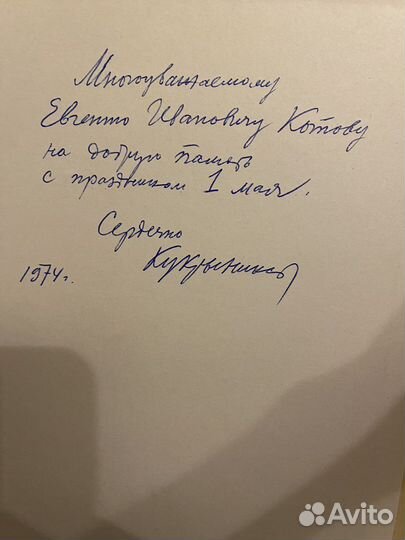 Многоуважаемому
Евгению Ивановичу Котову
на добрую память
с праздником 1 мая.
Сердечно
Кукрыниксы
1974 г.
Avito